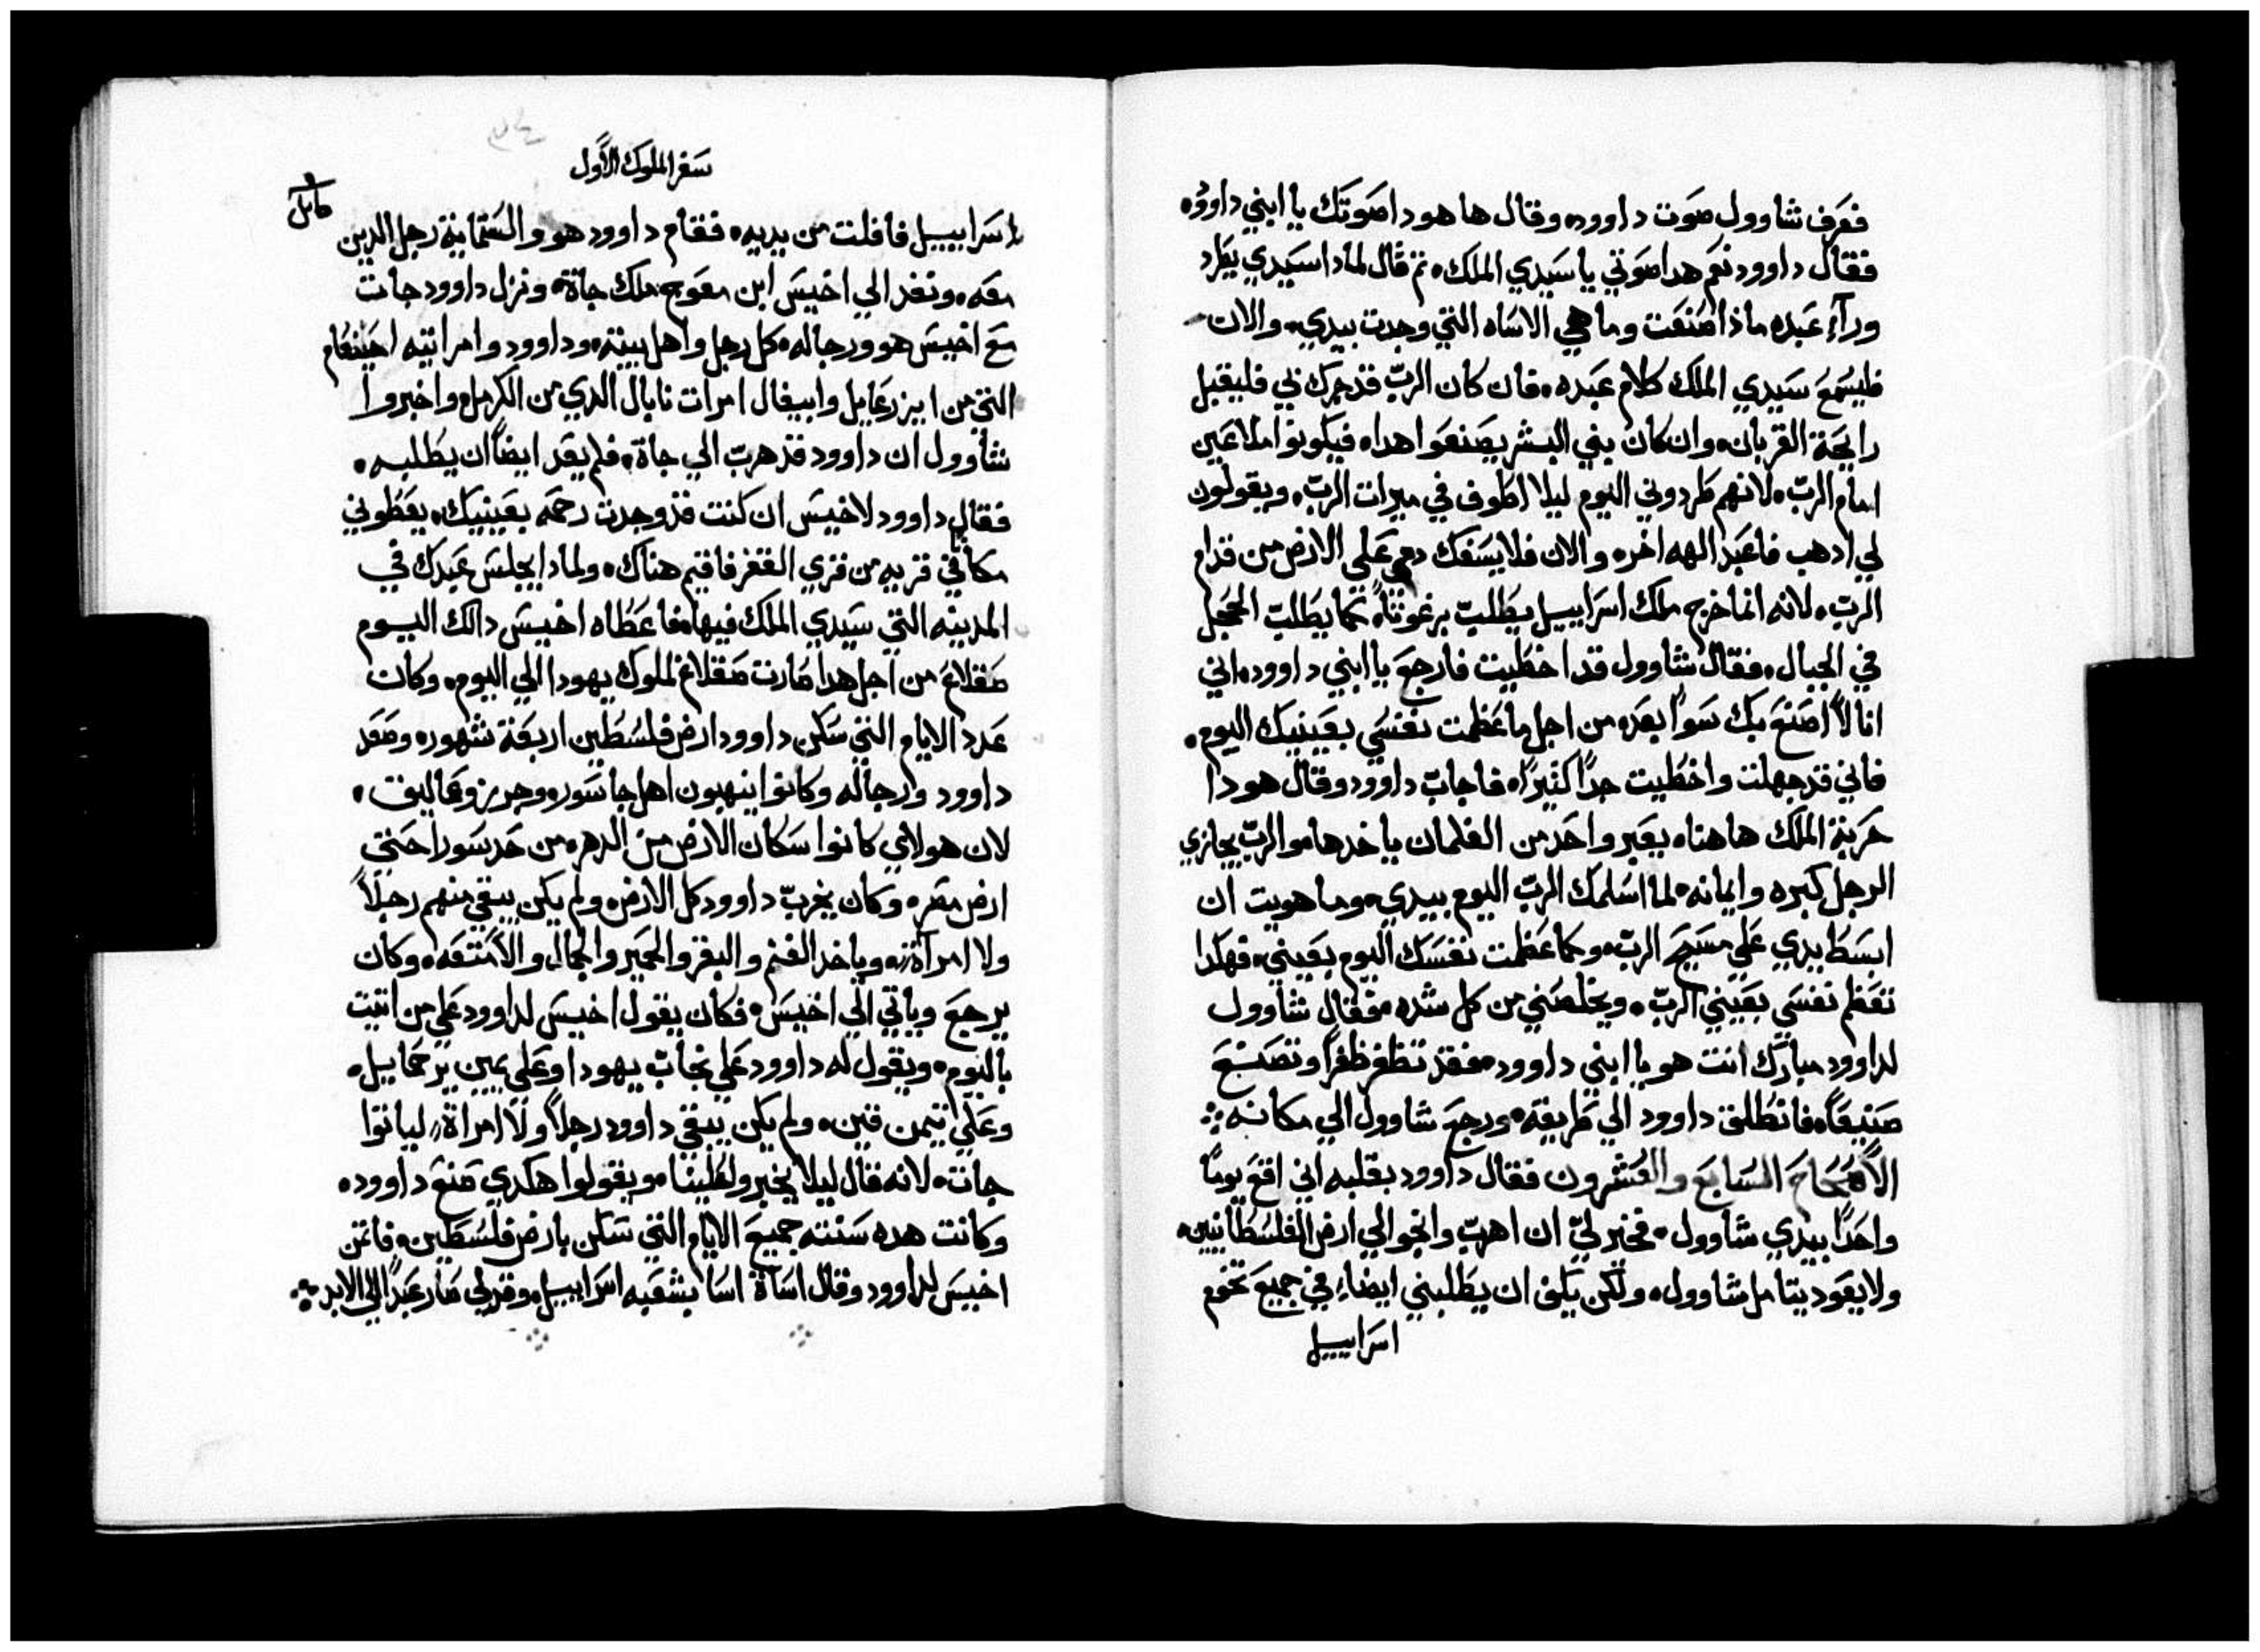 فعرف شاوول صوت داوود، وقال ها هودا صوتك يا ابني داوود،
فقال داوود نعم هدا صوتي يا سيدي الملك، ثم قال لمادا سيدي يطرد
ورآء عبده ماذا صنعت وما هي الاساه التي وجدت بيدي، والان
فليسمع سيدي الملك كلام عبده، فان كان الرب قد حركك بي فليقبل
رايحة القربان، وان كان بني البشر يصنعوا هدا، فيكونوا ملاعين
امام الرب، لانهم طردوني اليوم ليلا اطوف في ميرات الرب، ويقولون
لي ادهب فاعبد الهه اخر، والان فلا يسفك دمي علي الارض من قدام
الرب، لانه انما خرج ملك اسراييل يطلب برغوتاً، كما يطلب الحجل
في الجبال، فقال شاوول قد اخطيت فارجع يا ابني داوود، اني
انا لا اصنع بك سوا بعد، من اجل ما عظمت نفسي بعينيك اليوم،
فاني قد جهلت واخطيت جداً كثيراً، فاجاب داوود وقال هودا
حربة الملك هاهنا، يعبر واحد من الغلمان ياخدها، والرب يجازي
الرجل كبره وايمانه، لما اسلمك الرب اليوم بيدي، وما هويت ان
ابسط يدي علي مسيح الرب، وكما عظمت نفسك اليوم بعيني، فهكدا
تعظم نفسي بعيني الرب، ويخلصني من كل شده، فقال شاوول
لداوود مبارك انت هو يا ابني داوود، فقد تظفر ظفراً وتصنع
صنيعاً، فانطلق داوود الي طريقه، ورجع شاوول الي مكانه
الاصحاح السابع والعشرون فقال داوود بقلبه اني اقع يوماً
واحداً بيدي شاوول، فخير لي ان اهرب وانجوا الي ارض الفلسطانيين،
ولا يعود يتامل شاوول، ولكن يكف ان يطلبني ايضاً، في جميع تخوم
اسراييل
سفر الملوك الاول
اسراييل فافلت من يديه، فقام داوود هو والستماية رجل الدين
معه، ونفد الي اخيس ابن معوج ملك جاة، ونزل داوود جات
مع اخيس هو ورجاله، كل رجل واهل بيته، وداوود وامراتيه اخينعام
التي من ايزرعايل وابيغال امرات نابال الدي من الكرمل، واخبروا
شاوول ان داوود قد هرب الي جاة، فلم يعد ايضاً ان يطلبه،
فقال داوود لاخيس ان كنت قد وجدت رحمه بعينيك، يعطوني
مكاناً في قريه من قري القفز فاقيم هناك، ولمادا يجلس عبدك في
المدينه التي سيدي الملك فيها، فاعطاه اخيس دالك اليوم
صقلاغ، من اجل هدا صارت صقلاغ لملوك يهودا الي اليوم، وكان
عدد الايام التي سكن داوود ارض فلسطين اربعة شهور، وصعد
داوود ورجاله وكانوا ينهبون اهل جاسور، وجرز، وعماليق،
لان هولاي كانوا سكان الارض من الدهر، من حد سورا حتي
ارض مصر، وكان يخرب داوود كل الارض، ولم يكن يبقي منهم رجلاً
ولا امرآة، وياخد الغنم والبقر والحمير والجمال والامتعه، وكان
يرجع وياتي الي اخيس، فكان يقول اخيس لداوود علي من اتيت
باليوم، ويقول له داوود علي نجاب يهودا وعلي يمين يرحمايل،
وعلي تيمن قين، ولم يكن يبقي داوود رجلاً ولا امراة، لياتوا
جات، لانه قال ليلا يخبروا علينا، ويقولوا هكدي صنع داوود،
وكانت هده سنته جميع الايام التي سكن بارض فلسطين، فاتمن
اخيس لداوود وقال اساة اسا بشعبه اسراييل، وقد لي صار عبداً الي الابد